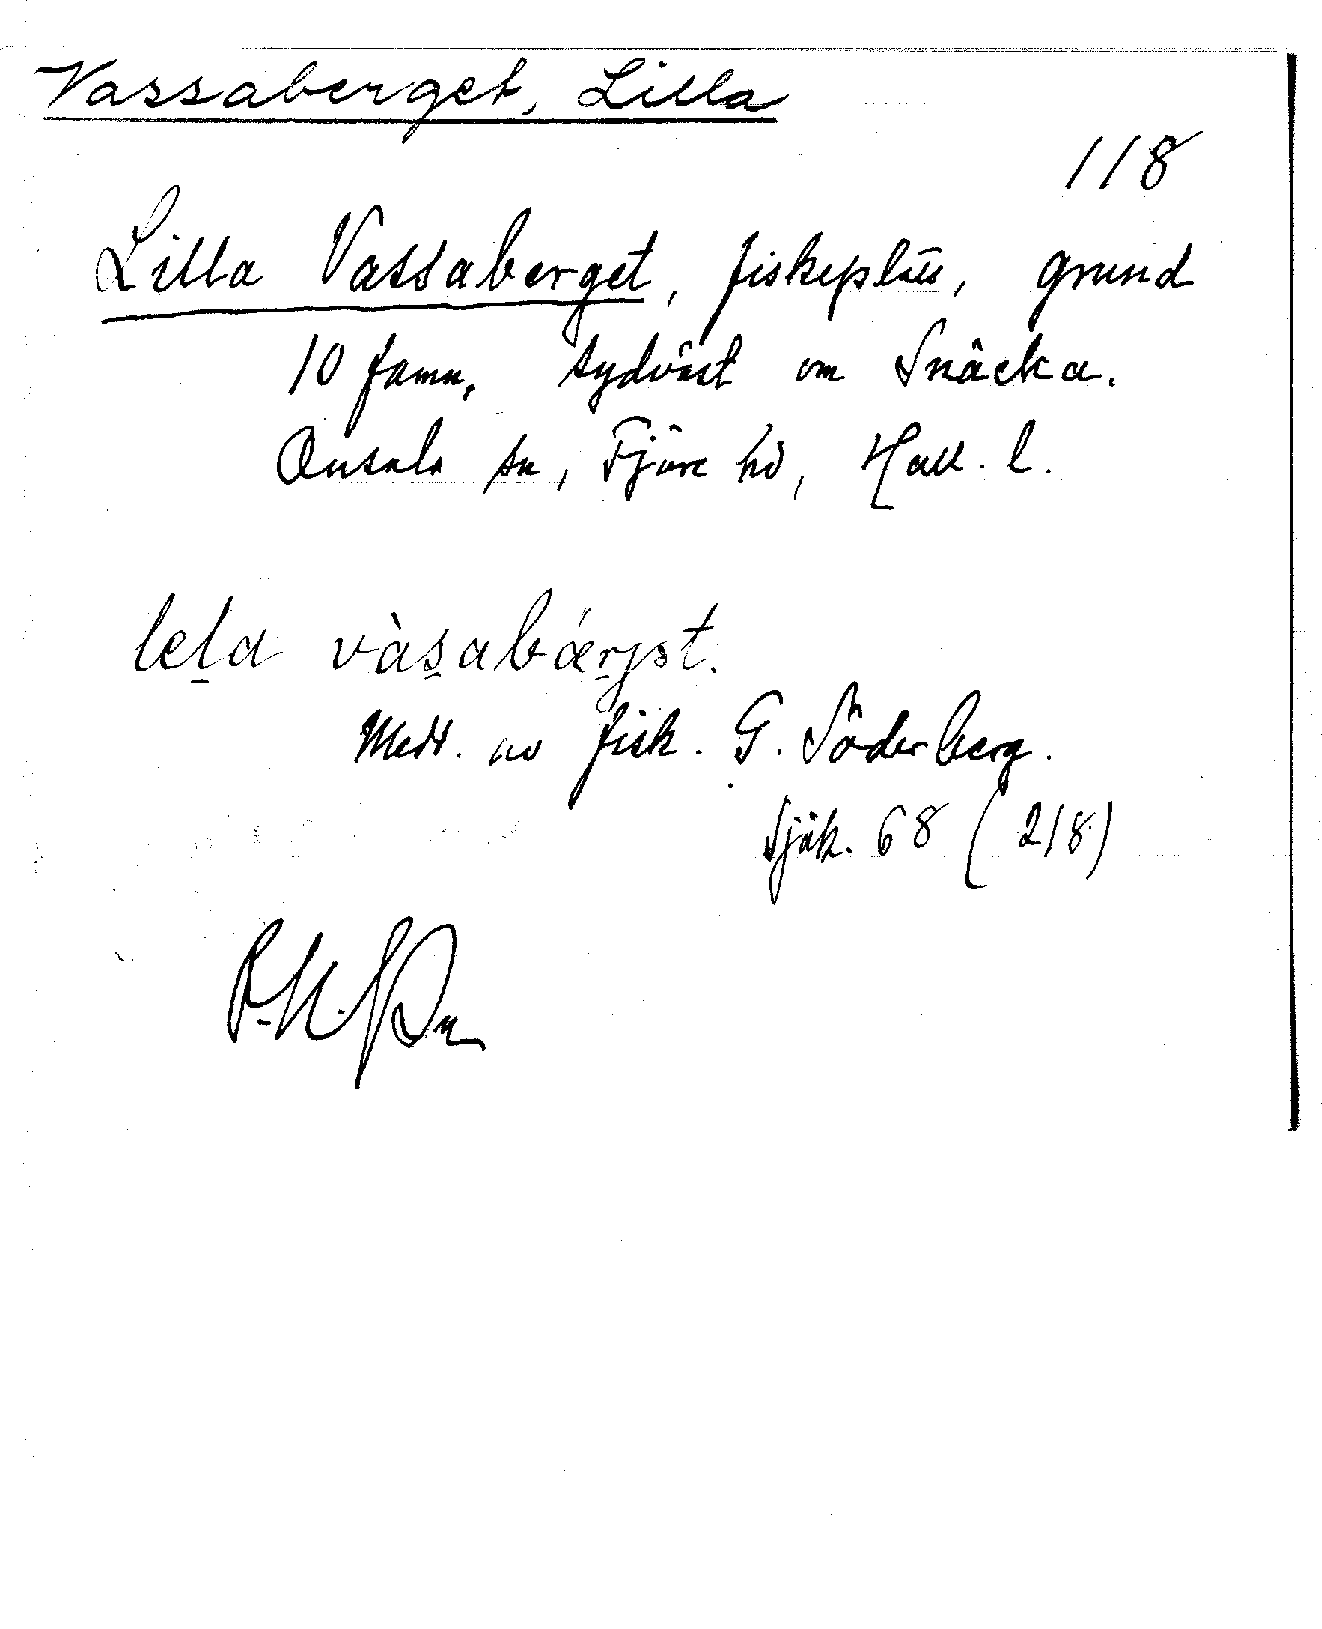 Vassaberget, Lilla
118
Lilla Vassaberget, fiskeplats, grund
10 famn, sydväst om Snäcka.
Onsala sn, Fjäre hd, Hall. l.
lela vàsabǽrjət.
Medd. av fisk. G. Söderberg.
Sjök. 68 (218)